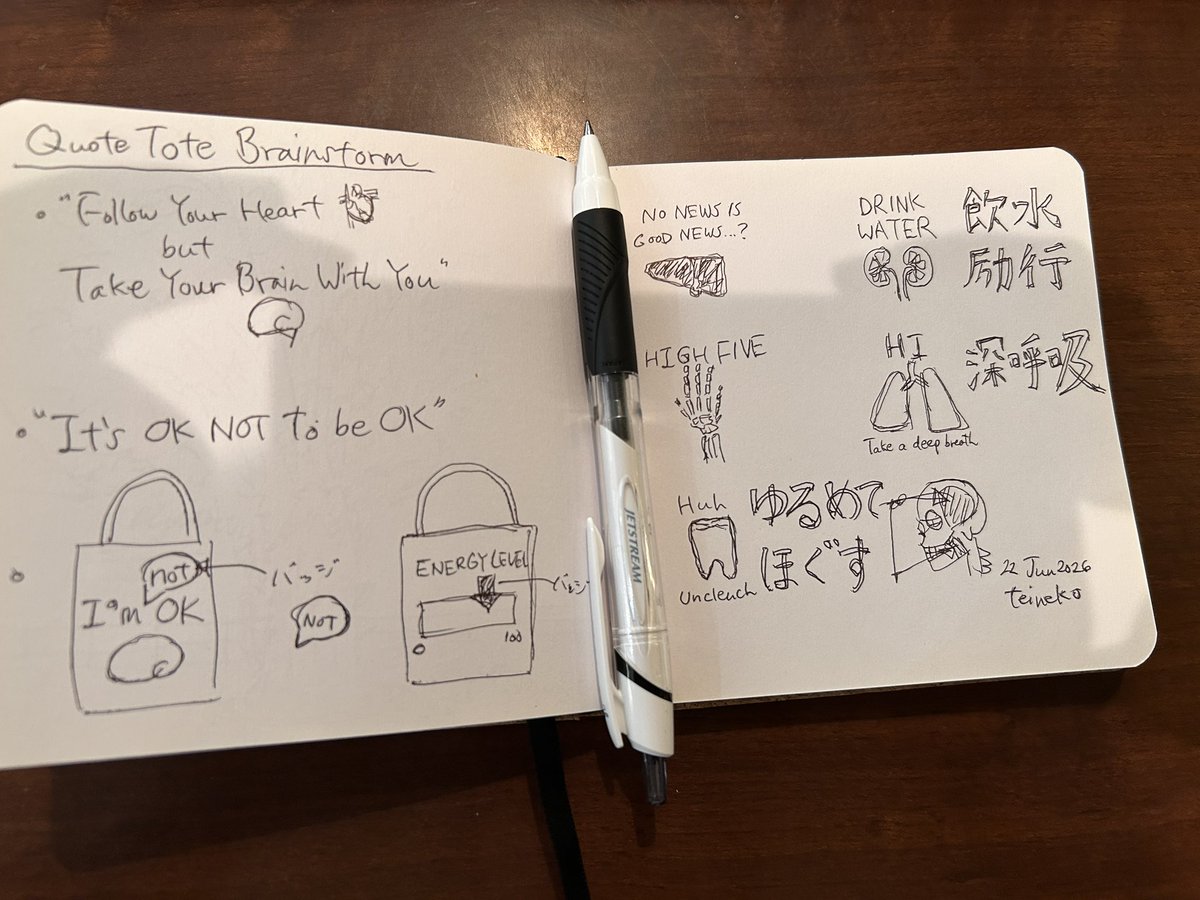 Quote Tote Brainstorm
• "Follow Your Heart
but
Take Your Brain With You"
• "It's OK NOT To be OK"
NOT
I'm OK
バッジ
NOT
ENERGY LEVEL
バッジ
0
100
JETSTREAM
NO NEWS IS
GOOD NEWS...?
DRINK
WATER
飲水
励行
HIGH FIVE
HI
Take a deep breath
深呼吸
Huh
Unclench
ゆるめて
ほぐす
22 Jun 2026
teineko